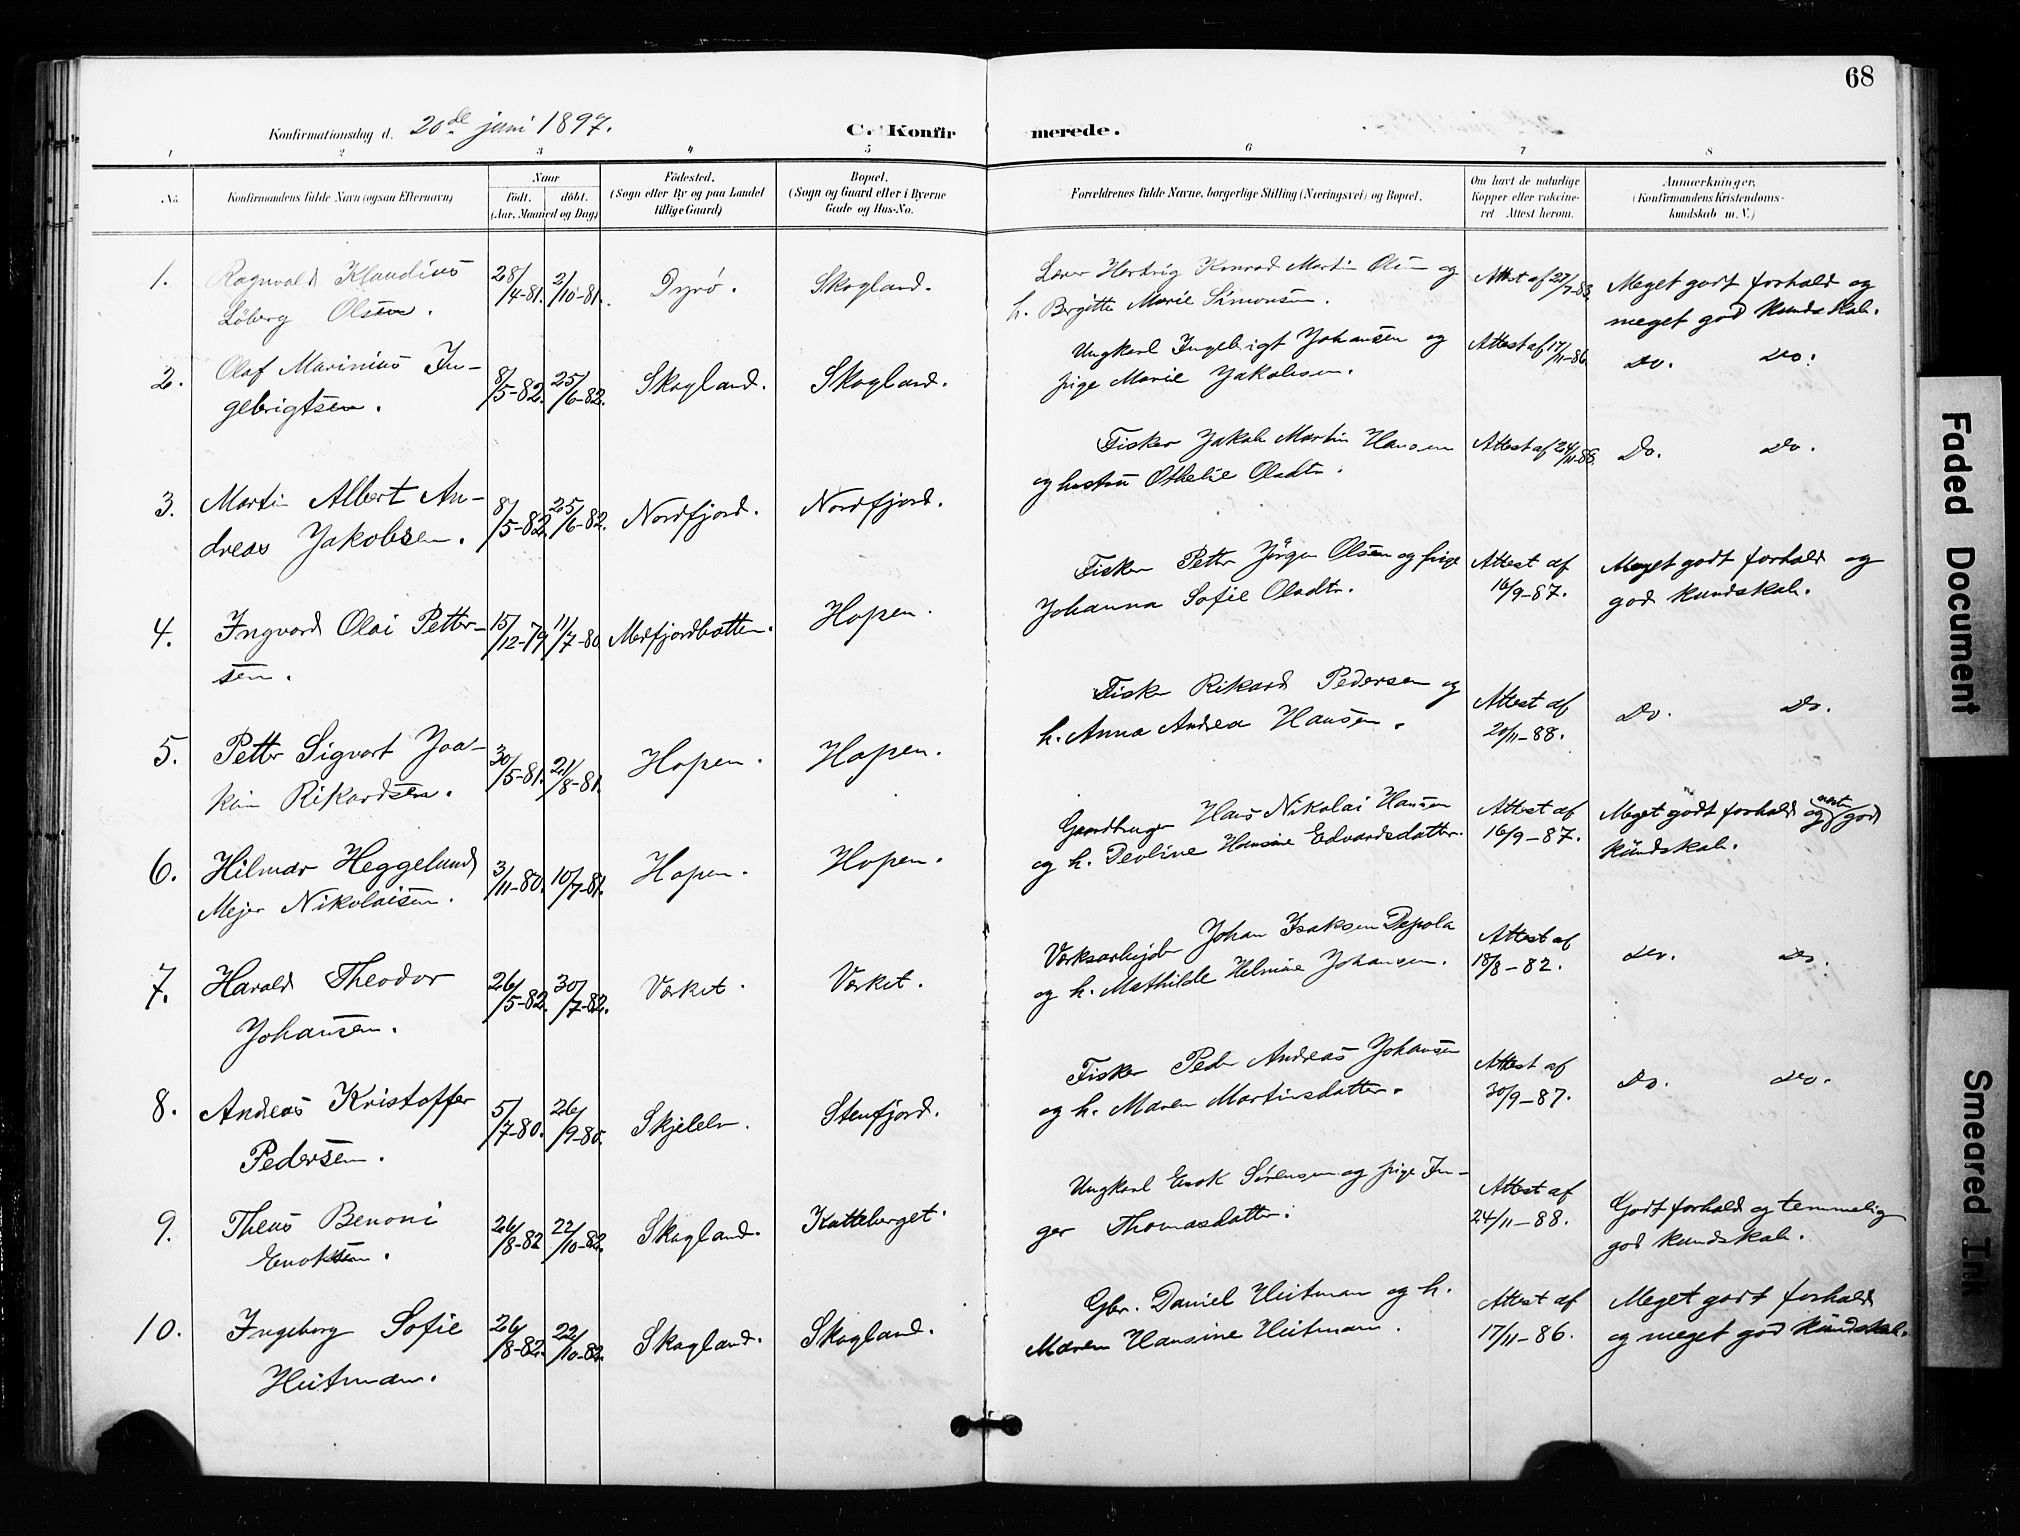 68
Konfirmationsdag d. 20de juni 1897.
C. Konfirmerede.
1 2 3 4 5 6 7 8
No.
Konfirmandens fulde Navn (ogsaa Efternavn)
Naar
födt. döbt.
(Aar, Maaned og Dag)
Födested.
(Sogn eller By og paa Landet
tillige Gaard)
Bopæl.
(Sogn og Gaard eller i Byerne
Gade og Hus-No.
Forældrenes fulde Navne, borgerlige Stilling (Næringsvei) og Bopæl.
Om havt de naturlige
Kopper eller vakcine-
ret. Attest herom.
Anmærkninger.
(Konfirmandens Kristendoms-
kundskab m. V.)
1. Ragnvald Klaudius
Löberg Olsen.
28/4-81. 2/10-81. Dyrö. Skogland.
Lærer Hartvig Konrad Martin Olsen og
h. Birgitte Marie Simonsen.
Attest af 27/7-83.
Meget godt forhold og
meget god kundskab.
2. Olaf Marinius In-
gebrigtsen.
8/5-82. 25/6-82. Skogland. Skogland.
Ungkarl Ingebrigt Johansen og
pige Marie Jakobsen.
Attest af 17/11-86.
Do. Do.
3. Martin Albert An-
dreas Jakobsen.
8/5-82. 25/6-82. Nordfjord. Nordfjord.
Fisker Jakob Martin Hansen
og hustru Othelie Olsdtr.
Attest af 24/11-88.
Do. Do.
4. Ingvard Olai Petter-
sen.
15/12-79 11/7-80. Medfjordbotten. Hopen.
Fisker Petter Jörgen Olsen og pige
Johanna Sofie Olsdtr.
Attest af
16/9-87.
Meget godt forhold og
god kundskab.
5. Petter Sigvart Joa-
kim Rikardsen.
30/5-81. 21/8-81. Hopen. Hopen.
Fisker Rikard Pedersen og
h. Anna Andrea Hansen.
Attest af
20/11-88.
Do. Do.
6. Hilmar Heggelund
Mejer Nikolaisen.
3/11-80. 10/7-81. Hopen. Hopen.
Gaardbruger Hans Nikolai Hansen
og h. Hansine Edvardsdatter.
Attest af
16/9-87.
Meget godt forhold og god
kundskab.
7. Harald Theodor
Johansen.
26/5-82. 30/7-82. Værket. Værket.
Værksarbejder Johan Isaksen
og h. Mathilde Helmine Johansen.
Attest af
18/8-82.
Do. Do.
8. Andreas Kristoffer
Pedersen.
5/7-80. 26/9-80. Stenfjord.
Fisker Peder Andreas Johansen
og h. Maren Martinsdatter.
Attest af
30/9-87.
Do. Do.
9. Theus Benoni
Enoksen.
26/8-82 22/10-82. Skogland. Katteberget.
Ungkarl Enok Sörensen og pige In-
ger Thomasdatter.
Attest af
24/11-88.
Godt forhold og temmelig
god kundskab.
10. Ingeborg Sofie
Heitman.
26/8-82. 22/10-82. Skogland. Skogland.
Gbr. Daniel Heitman og h.
Maren Hansine Heitman.
Attest af
17/11-86.
Meget godt forhold
og meget god kundskab.
Faded Document
Smeared Ink